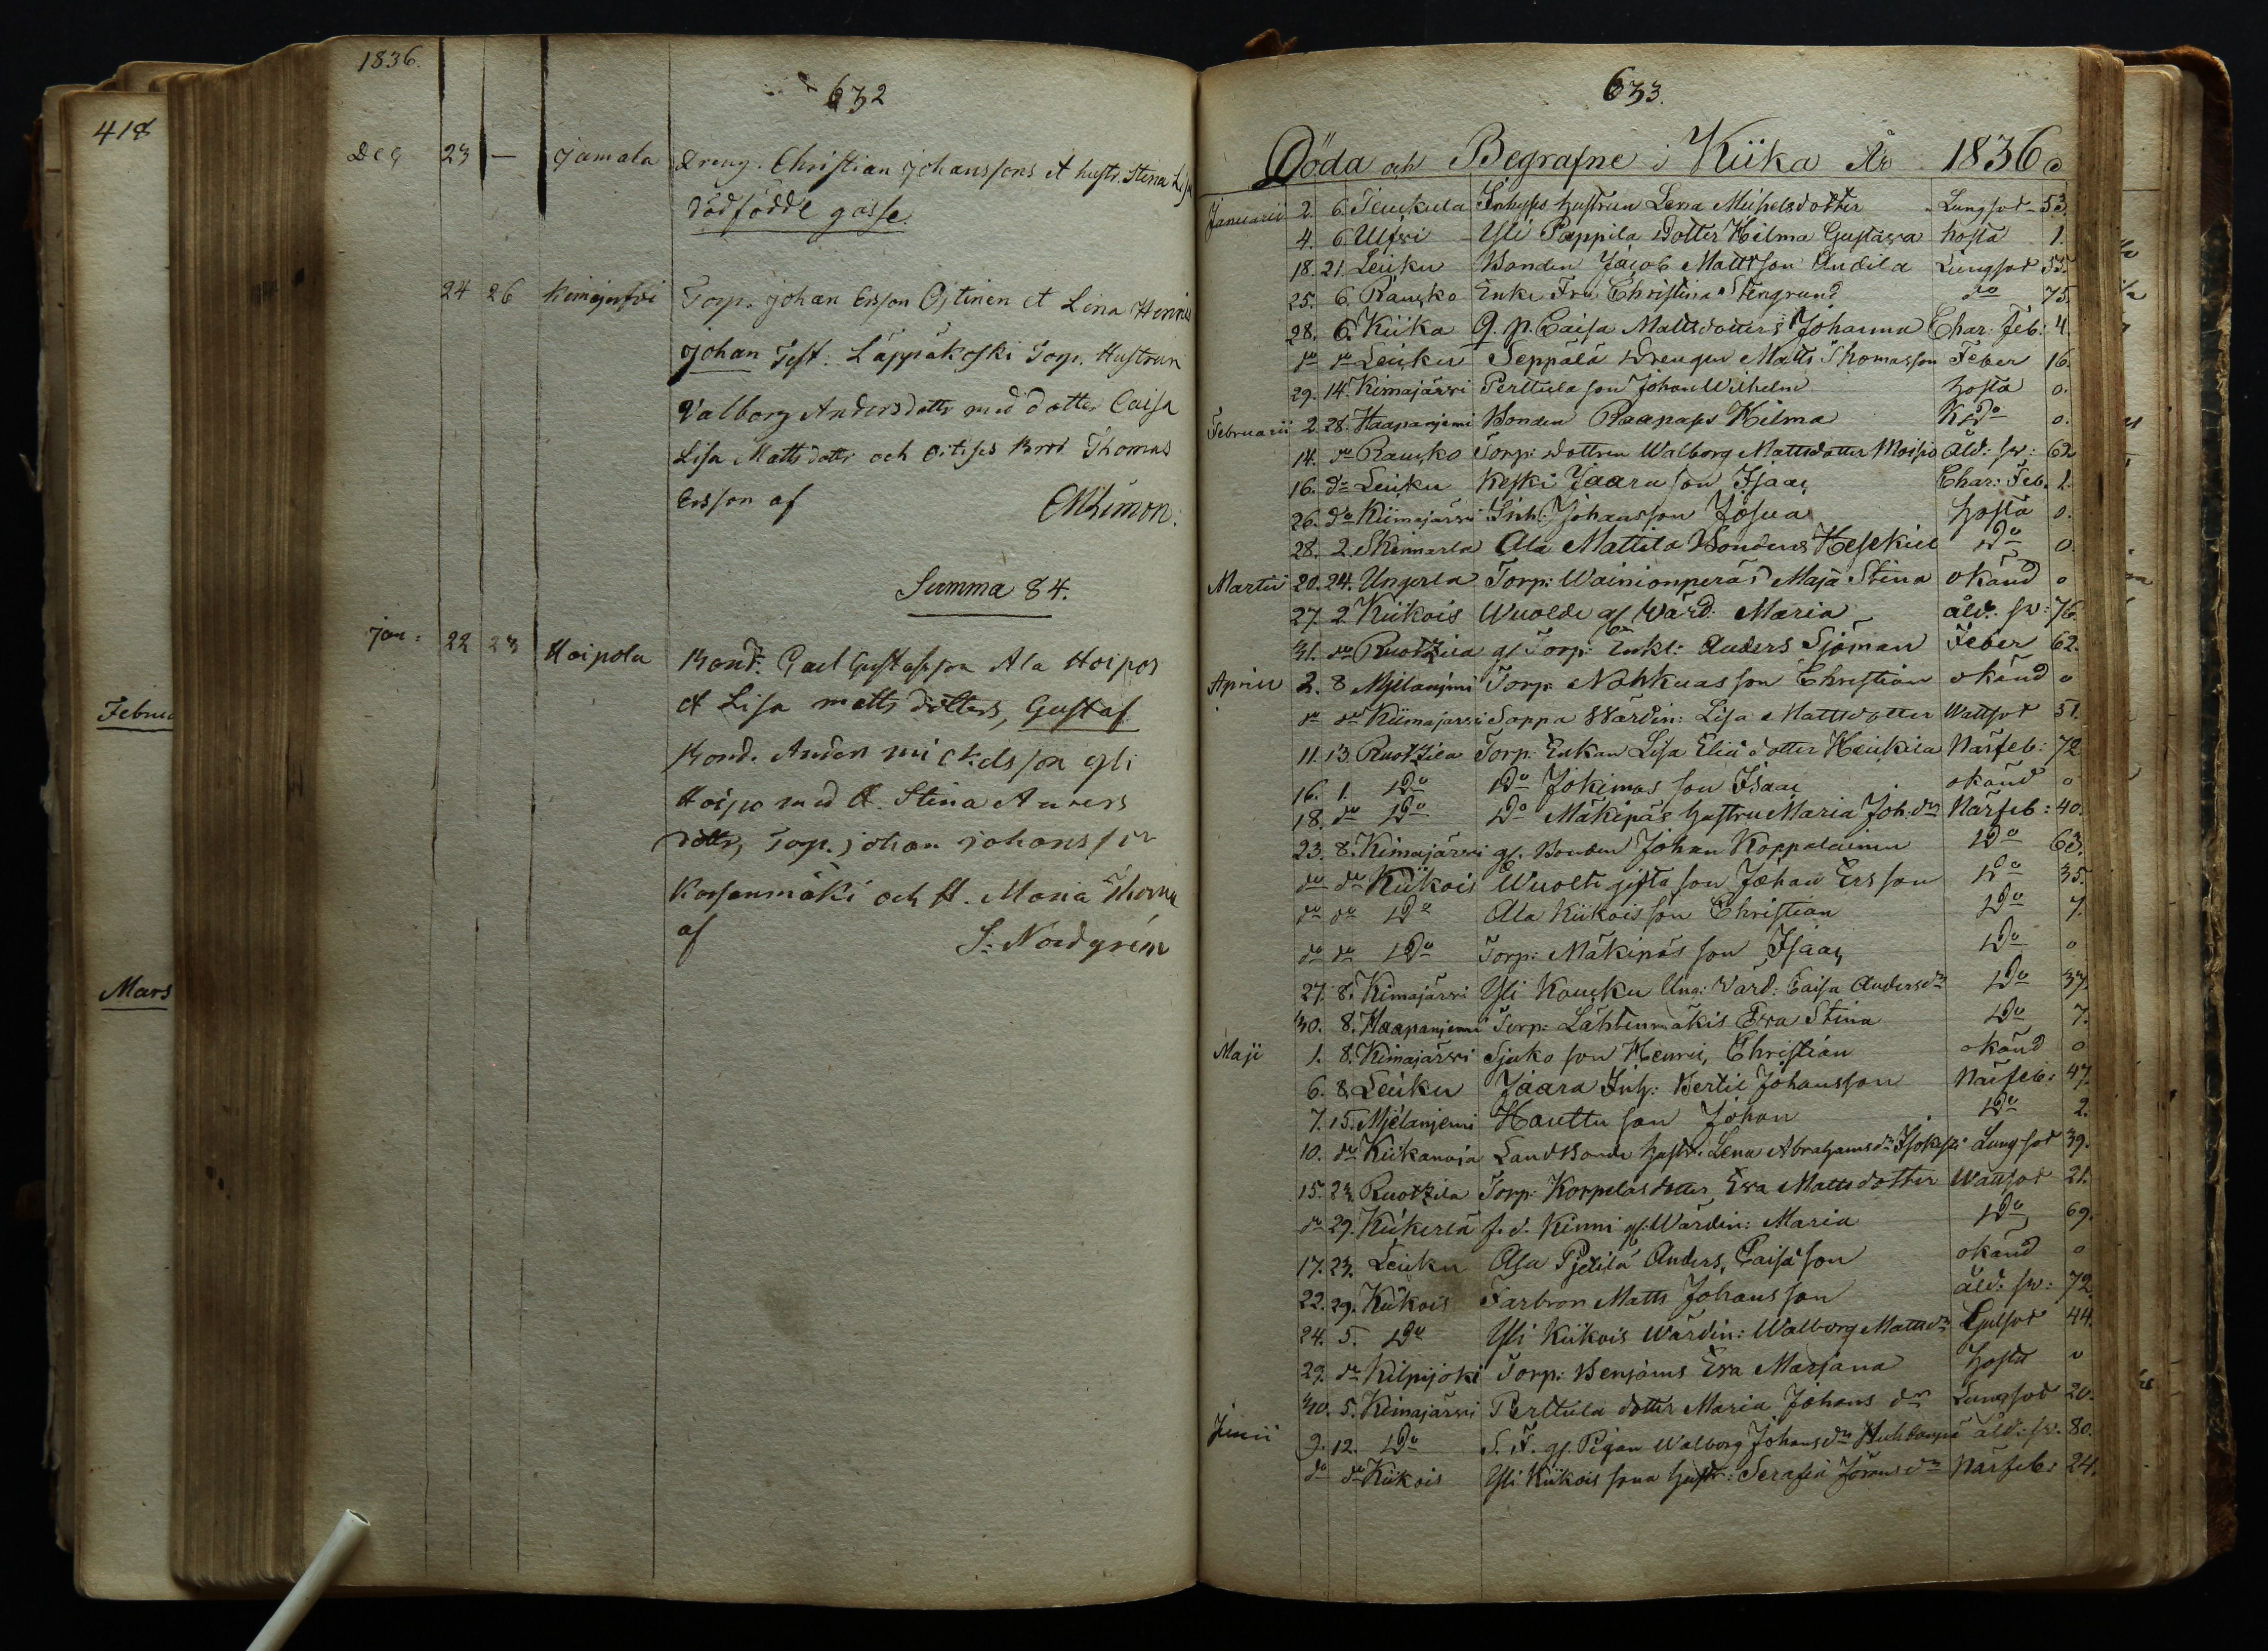 418
Februa
Mars
1836.
632
Dec 23 — Jamala Dreng. Christian Johanssons et hustr. Stina Lisa
dödfödde gosse.
24 26 Kimajerfvi Torp. Johan Ersson Ojtinen et Lena Henries
Johan Test: Läppäkoski Torp. Hustrun
Valborg Andersdotter med dotter Caisa
Lisa Mattsdotter och Thomas
Ersson af
Summa 84.
Jan: 22 23 Hoipola Bond. Carl Gustafsson Ala Hoipos
et Lisa Mattsdotters, Gustaf
Bond. Anders Mickelsson yli
Hoipo med H. Stina Anders
dotter, Torp. Johan Johansson
Kossenmäki och H. Maria Thoma
af S. Nordgrén
633.
Döda och Begrafne i Kiika År 1836
Januarii 2. 6. Inhyses hustrun Lena Michelsdotter Lungsot 53.
4. 6 Ulfvi Yli Pappila Dotter Hilma Gustava hosta 1.
18. 21. Leuku Bonden Jacob Mattsson Andila Lungsot 55.
25. 6. Raucko Enke Fru Christina Stengrund do 75.
28. 6. Kiika Q. p. Caisa Mattsdotters Johanna Char: Feb: 4.
do do Leuku Seppälä Drengen Matts Thomasson Feber 16.
29. 14. Kimajärvi Perttula son Johan Wilhelm hosta 0.
Februarii 2. 28. Haapanjemi Bonden Raapas Hilma Do 0.
14. do Raucko Torp: dottren Walborg Mattsdotter Moisio Åld: sv: 62
16. do Leuku Keski Jaara son Isaac Char: Feb. 1.
26. do Kiimajärvi Inh: Johansson Josua hosta 0.
28. 2. Skinnarla Ala Mattila Bondens Hesekiel Do 0.
Martii 20. 24. Ungerla Torp: Wainionperäs Maja Stina okänd 0
27. 2 Kiikois Wuolde gl Värd: Maria åld: sv: 76.
31. do Ruotzila gl Torp: Enkl: Anders Sjöman Feber 62.
Aprill 2. 8 Mjélanjemi Torp: Nohkuas son Christian okänd 0
do do Kiimajärvi Soppa Wärdin: Lisa Mattsdotter Wattsot 51.
11. 13. Ruotzila Torp: Enkan Lisa Eliæ dotter Heickila Närfeb: 72
16. 1. Do Do Jokimas son Isaac okänd 0
18. do Do Do Mäkipäs hustru Maria Joh:dr Närfeb: 40.
23. 8. Kimajärvi gl. Bonden Johan Koppalainen Do 63.
do do Kiikois Wuolti gifta son Johan Ersson Do 35.
do do Do Ala Kiikois son Christian Do 7.
do do Do Torp: Mäkipäs son Isaac Do 0
27. 8. Kimajärvi Yli Koucku Ung: Värd: Caisa Andersdr Do 37.
30. 8. Haapanjemi Torp: Lähtenmäkis Eva Stina Do 7.
Maji 1. 8. Kimajärvi Sjuko son Henric, Christian okänd 0
6. 8. Leuku Jaara Inh: Bertil Johansson Närfeb: 47.
7. 15. Mjélanjemi Hauttu son Johan Do 2.
10. do Kiikanoja Landbonde hustr: Lena Abrahamsdr Lungsot 39.
15. 23. Ruotzila Torp: Korpelas dotter Eva Mattsdotter Wattsot 21.
do 29. Kiikerlä f. d. Kinni gl: Wärdin: Maria Do 69.
17. 23. Leuku Asa Pjetilä Anders, Caisa son okänd 0
22. 29. Kiikois Farbron Matts Johansson åld: sv: 72.
24. 5. Do Yli Kiikois Wärdin: Walborg Mattsdr Gulsot 44.
29. do Kilpijoki Torp: Benjams Eva Marjana hosta 0
30. 5. Kimajärvi Perttula dotter Maria Johans dr Lungsot 20.
Junii 9. 12. Do S. F. gl. Pigan Walborg Johansdr åld: sv. 80.
do do Kiikois Yli Kiikois sons hustr: Serafia Jöransdr Närfeb: 24.